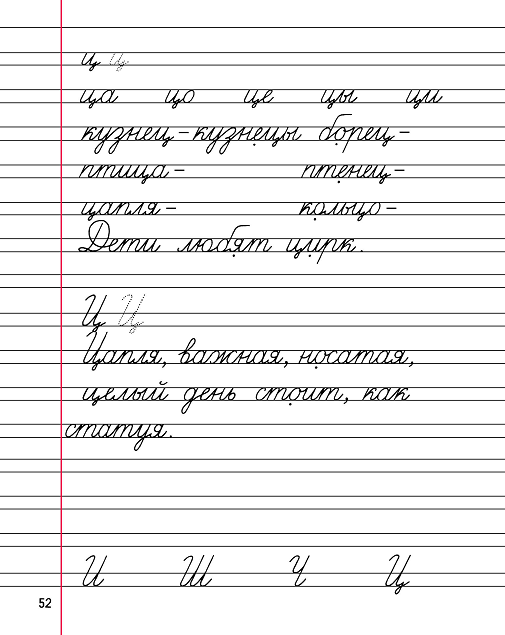 ц ц
ца цо це цы ци
кузнец – кузнецы борец –
птица – птенец –
цапля – кольцо –
Дети любят цирк.
Ц Ц
Цапля, важная, носатая,
целый день стоит, как
статуя.
И Ш Ч Ц
52